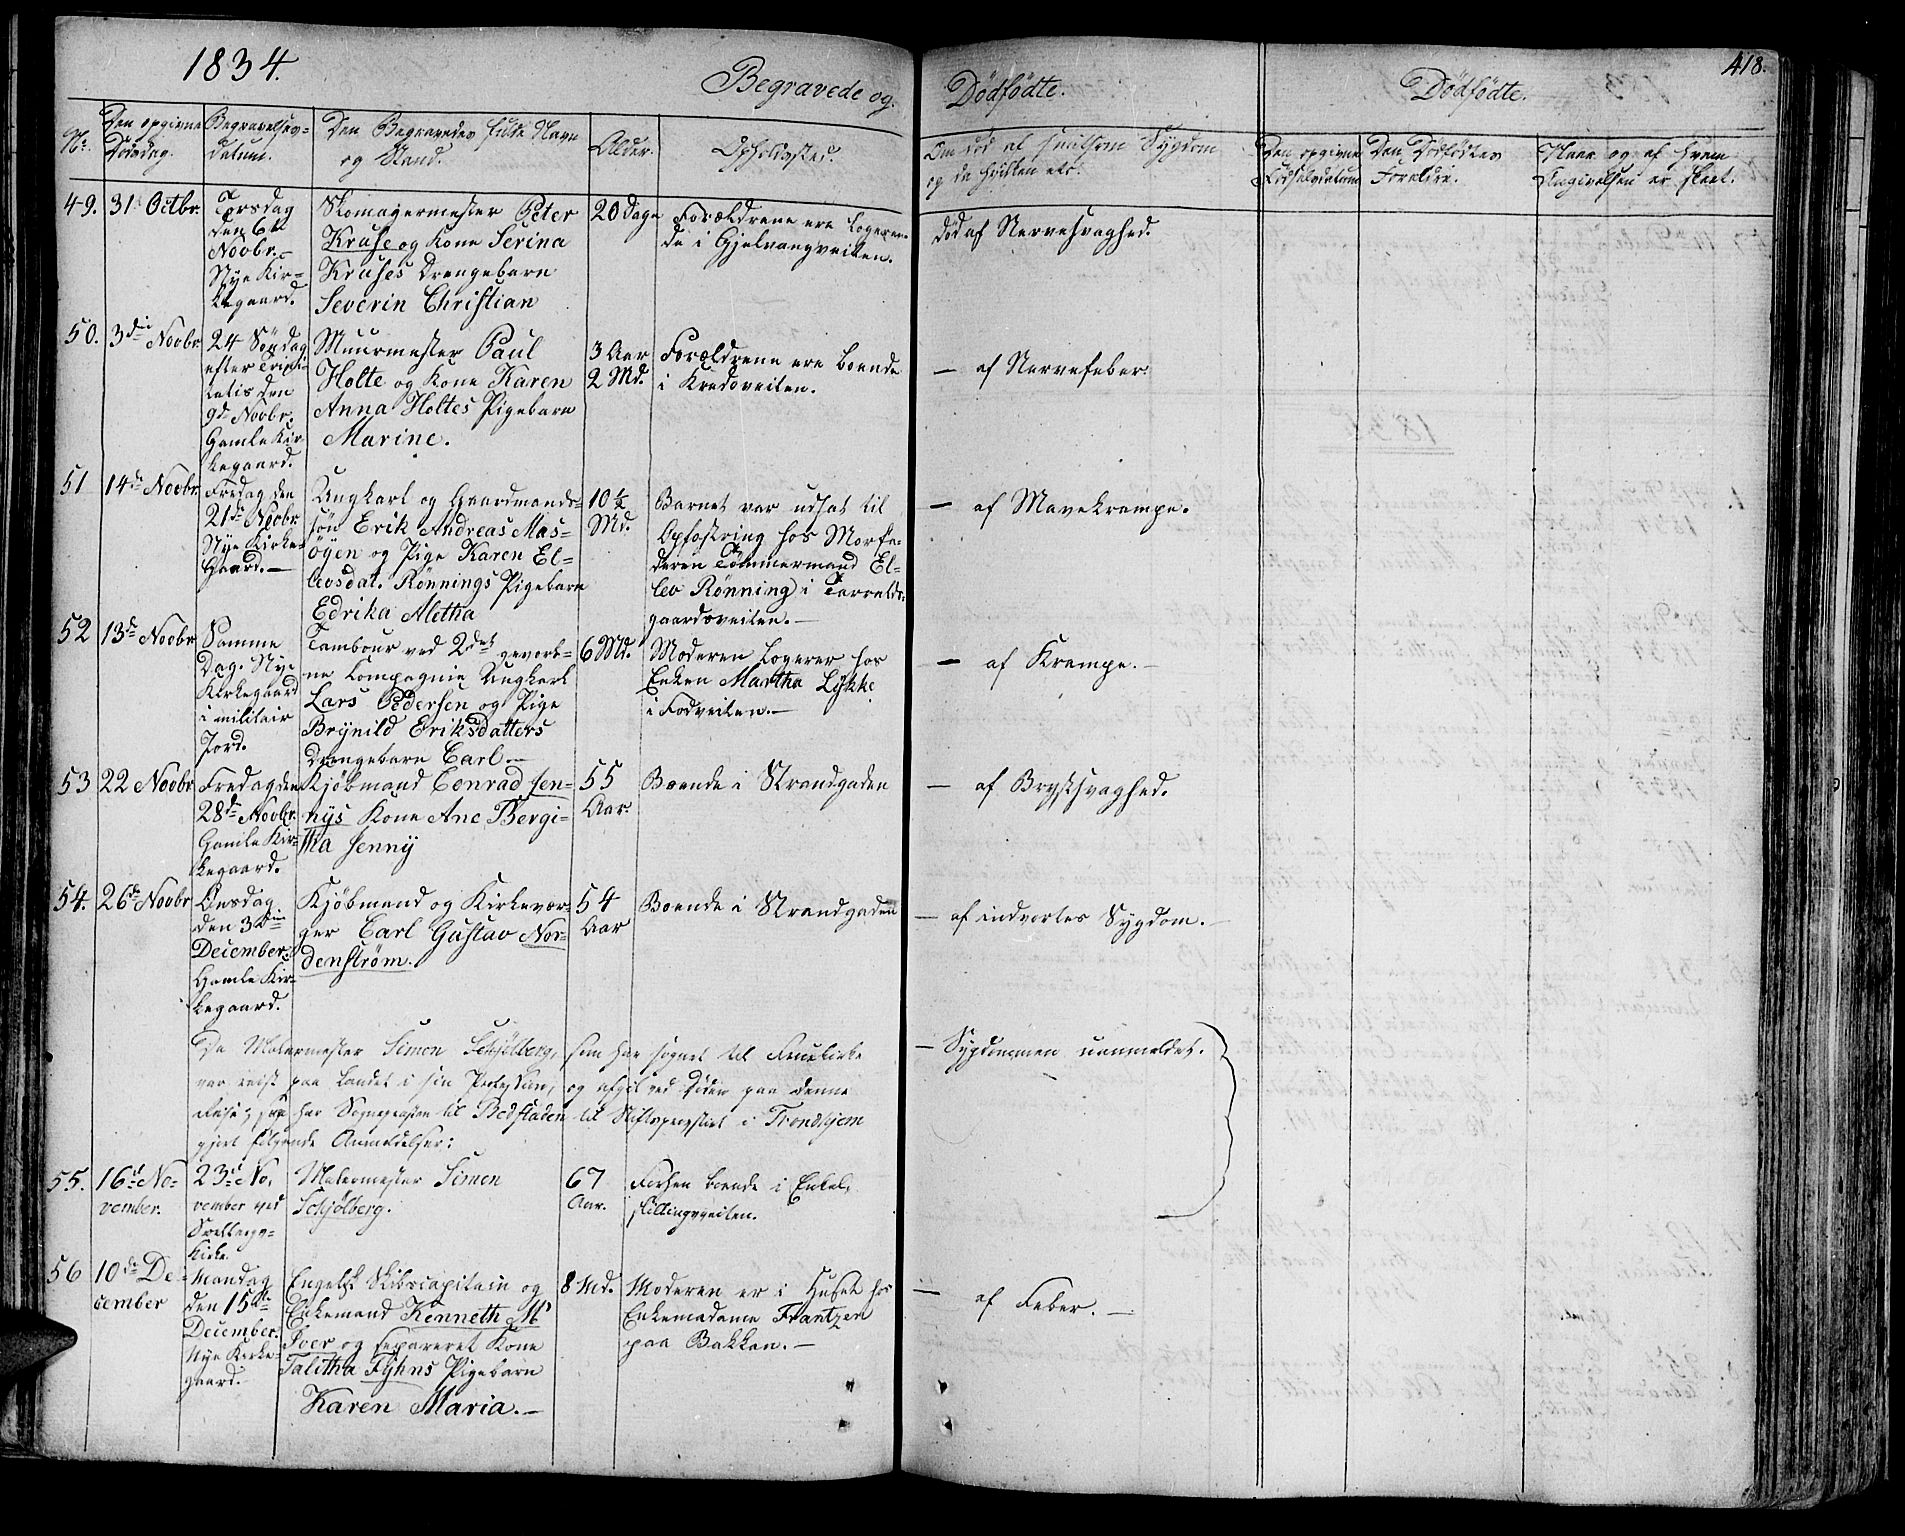 1834.
Begravede og
Dödfödte.
Dödfödte.
418.
No.
Den opgivne
Dödsdag.
Begravelses-
datum.
Den Begravedes fulde Navn
og Stand.
Alder.
Opholdssted.
Om död af smitsom Sygdom
og da hvilken etc.
Den opgivne
Födselsdatum
Den Dödfödtes
Forældre.
Naar og af hvem
Angivelsen er skeet.
49.
31 Octbr.
Torsdag
den 6te
Novbr.-
Nye Kir-
kegaard.
Skomagermester Peter
Kruse og Kone Serina
Kruses Drengebarn
Severin Christian
20 Dage
Forældrene ere Logeren-
de i Gjelvangveiten.
Död af Nervesvaghed.
50.
3die Novbr
24 Söndag
efter Trini-
tatis den
9de Novbr.
Gamle Kir-
kegaard.
Muurmester Paul
Holte og Kone Karen
Anna Holtes Pigebarn
Marine.
3 Aar
2 Md.
Forældrene ere boende
i Krudsveiten.
— af Nervefeber.
51
14de Novbr.
Fredag den
21de Novbr.
Nye Kirke-
Gaard.—
Ungkarl og Gaardmands-
sön Erik Andreas Mas-
öyen og Pige Karen El-
levsdat. Rönnings Pigebarn
Edrika Aletha
10 ½
Md.
Barnet var udsat til
Opfostring hos Morfa-
deren Tömmermand El-
lev Rönning i Torvalds-
gaardsveiten.—
— af Mavekrampe.
52
13de Novbr
Samme
Dag. Nye
Kirkegaard
i militair
Jord.
Tambour ved 2det gevorb-
ne Compagnie Ungkarl
Lars Pedersen og Pige
Brynild Eriksdatters
Drengebarn Carl.—
6 Md.
Moderen Logerer hos
Enken Martha Lykke
i Fodveiten.—
— af Krampe.—
53
22 Novbr
Fredag den
28de Novbr.
Gamle Kir-
kegaard.
Kjöbmand Conrad Jen-
nys Kone Ane Bergi-
tha Jenny
55
Aar.
Boende i Strandgaden
— af Brystsvaghed.
54.
26de Novbr
Onsdag
den 3die
December.
Gamle Kir-
kegaard.
Kjöbmand og Kirkevær-
ger Carl Gustav Nor-
denström.
54
Aar
Boende i Strandgaden
— af indvortes Sygdom.—
Da Malermester Simon Schjölberg, som har sognet til Fruekirke
var reist paa Landet i sin Profession, og afgik ved Döden paa denne
Reise, saa har Sognepresten til Bedstaden til Stiftsprovstiet i Trondhjem
gjort fölgende Anmeldelser:
— Sygdommen uanmeldet.
55.
16de No-
vember.
23de No-
vember ved
Kirke
Malermester Simon
Schjölberg.
67
Aar.
Forhen boende i Enkel-
skillingsveiten.
56
10de De-
cember
Mandag
den 15de
December.
Nye Kirke-
gaard.
Engelsk Skibscapitain og
Enkemand Kenneth Mc
Iver og separeret Kone
Talitha Fyhns Pigebarn
Karen Maria.—
8 Md.
Moderen er i Huset hos
Enkemadame Frantzen
paa Bakken.—
— af Feber.—